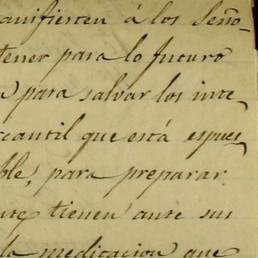 anifiesten á los Seño-
tener para lo futuro
para salvar los inte-
cantil que está espues-
ble, para preparar
tienen ante sus
la meditacion que